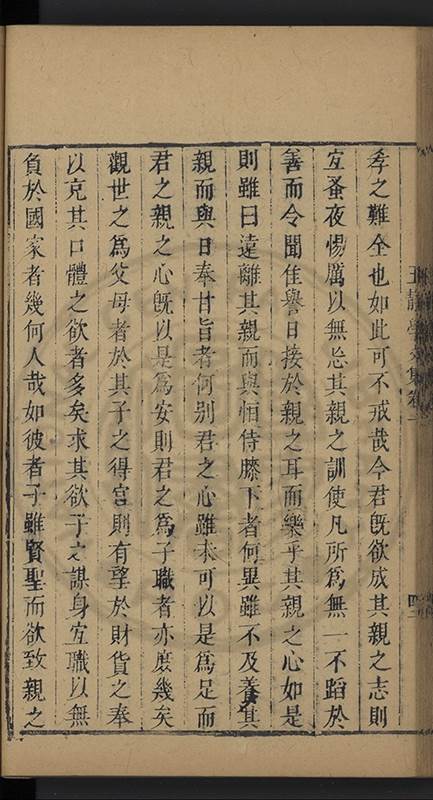 孝之難全也如此可不戒哉今君既欲成其親之志則
宜蚤夜惕厲以無忘其親之訓使凡所為無一不蹈於
善而令聞佳譽日接於親之耳而樂乎其親之心如是
則雖曰遠離其親而與恒侍膝下者何異雖不及養其
親而與日奉甘旨者何别君之心雖未可以是為足而
君之親之心既以是為安則君之為子職者亦庶幾矣
觀世之為父母者於其子之得官則有望於財貨之奉
以克其口體之欲者多矣求其欲子之謀身宜職以無
負於國家者幾何人哉如彼者子雖賢聖而欲致親之
王靜學文集卷一
四二